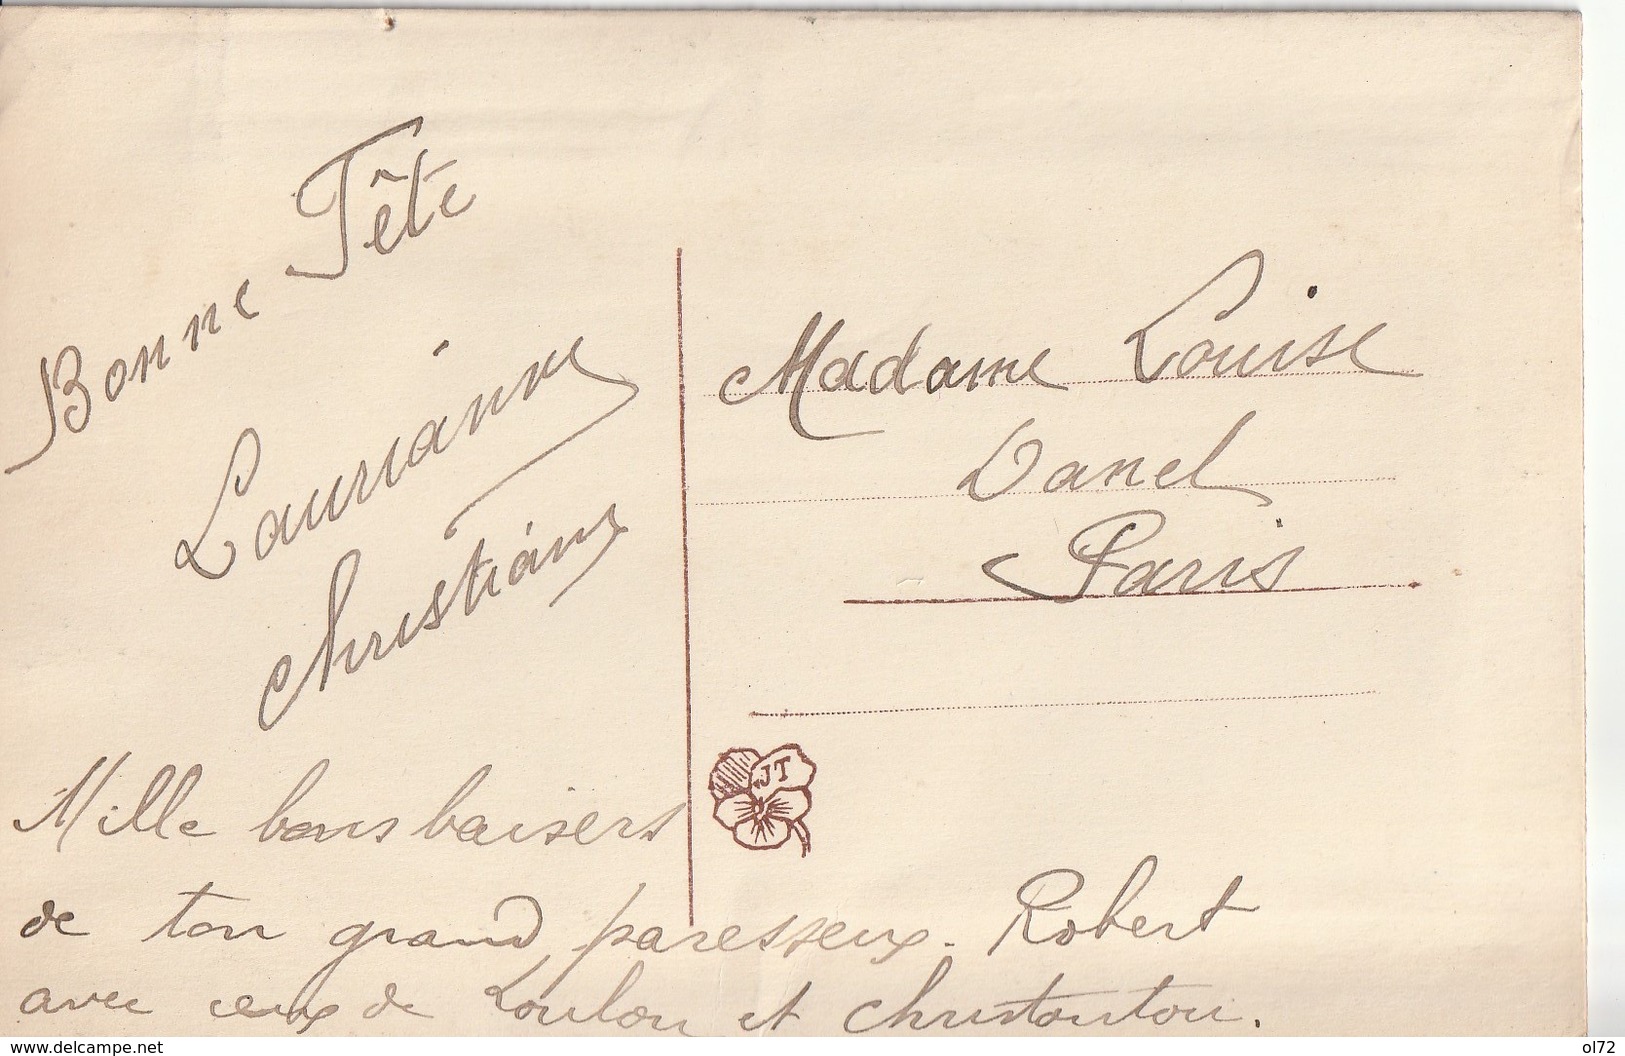 Bonne Fête
Laurianne
Christiane
Mille bons baisers
de ton grand paresseux. Robert
avec ceux de Loulou et Christoutou.
Madame Louise
Danel
Paris
JT
www.delcampe.net
ol72